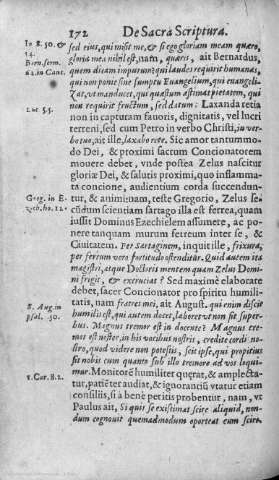 172 De Sacra Scriptura.
Io 8. 50. &
54.
Bern. serm.
62. in Cant.
Luc 5. 5.
Greg. in E-
zech. ho. 12.
8. Aug. in
psal. 50.
1. Cor. 8. 2.
sed eius, qui misit me, & si ego gloriam meam quæro,
gloria mea nihil est, nam, quæris, ait Bernardus,
quem dicam impurum? qui laudes requirit humanas,
qui non ponit sine sumptu Euangelium, qui euangeli-
zat, vt manducet, qui quæstum æstimat pietatem, qui
non requirit fructum, sed datum: Laxanda retia
non in capturam fauoris, dignitatis, vel lucri
terreni, sed cum Petro in verbo Christi, in ver-
bo tuo, ait ille, laxabo rete. Sic amor tantummo-
do Dei, & proximi sacrum Concionatorem
mouere debet, vnde postea Zelus nascitur
gloriæ Dei, & salutis proximi, quo inflamma-
ta concione, audientium corda succendun-
tur, & animum, teste Gregorio, Zelus se-
cundum scientiam sartago illa est ferrea, quam
iussit Dominus Ezechielem assumere, ac po-
nere tanquam murum ferreum inter se, &
Ciuitatem. Per Sartaginem, inquit ille, frixura,
per ferrum vero fortitudo ostenditur. Quid autem ita
magistri, atque Doctoris mentem quam Zelus Domi
ni frigit, & excruciat? Sed maxime elaborate
debet, sacer Concionator pro spiritu humili-
tatis, nam fratres mei, ait August. qui enim discit
humilis est, qui autem docet, laboret vt non sit super-
bus. Magnus tremor est in docente? Magnus tre-
mor est nester, in his vocibus nostris, credite cordi no-
stro, quod videre non potestis, scit ipse, qui propitius
sit nobis cum quanto sub illo tremore ad vos loqui-
mur. Monitorem humiliter quærat, & amplecta-
tur, patienter audiat, & ignorantiū vtatur etiam
consilijs, si à bene peritis probentur, nam, vt
Paulus ait, Si quis se existimat scire aliquid, non-
dum cognouit quemadmodum oporteat eum scire.